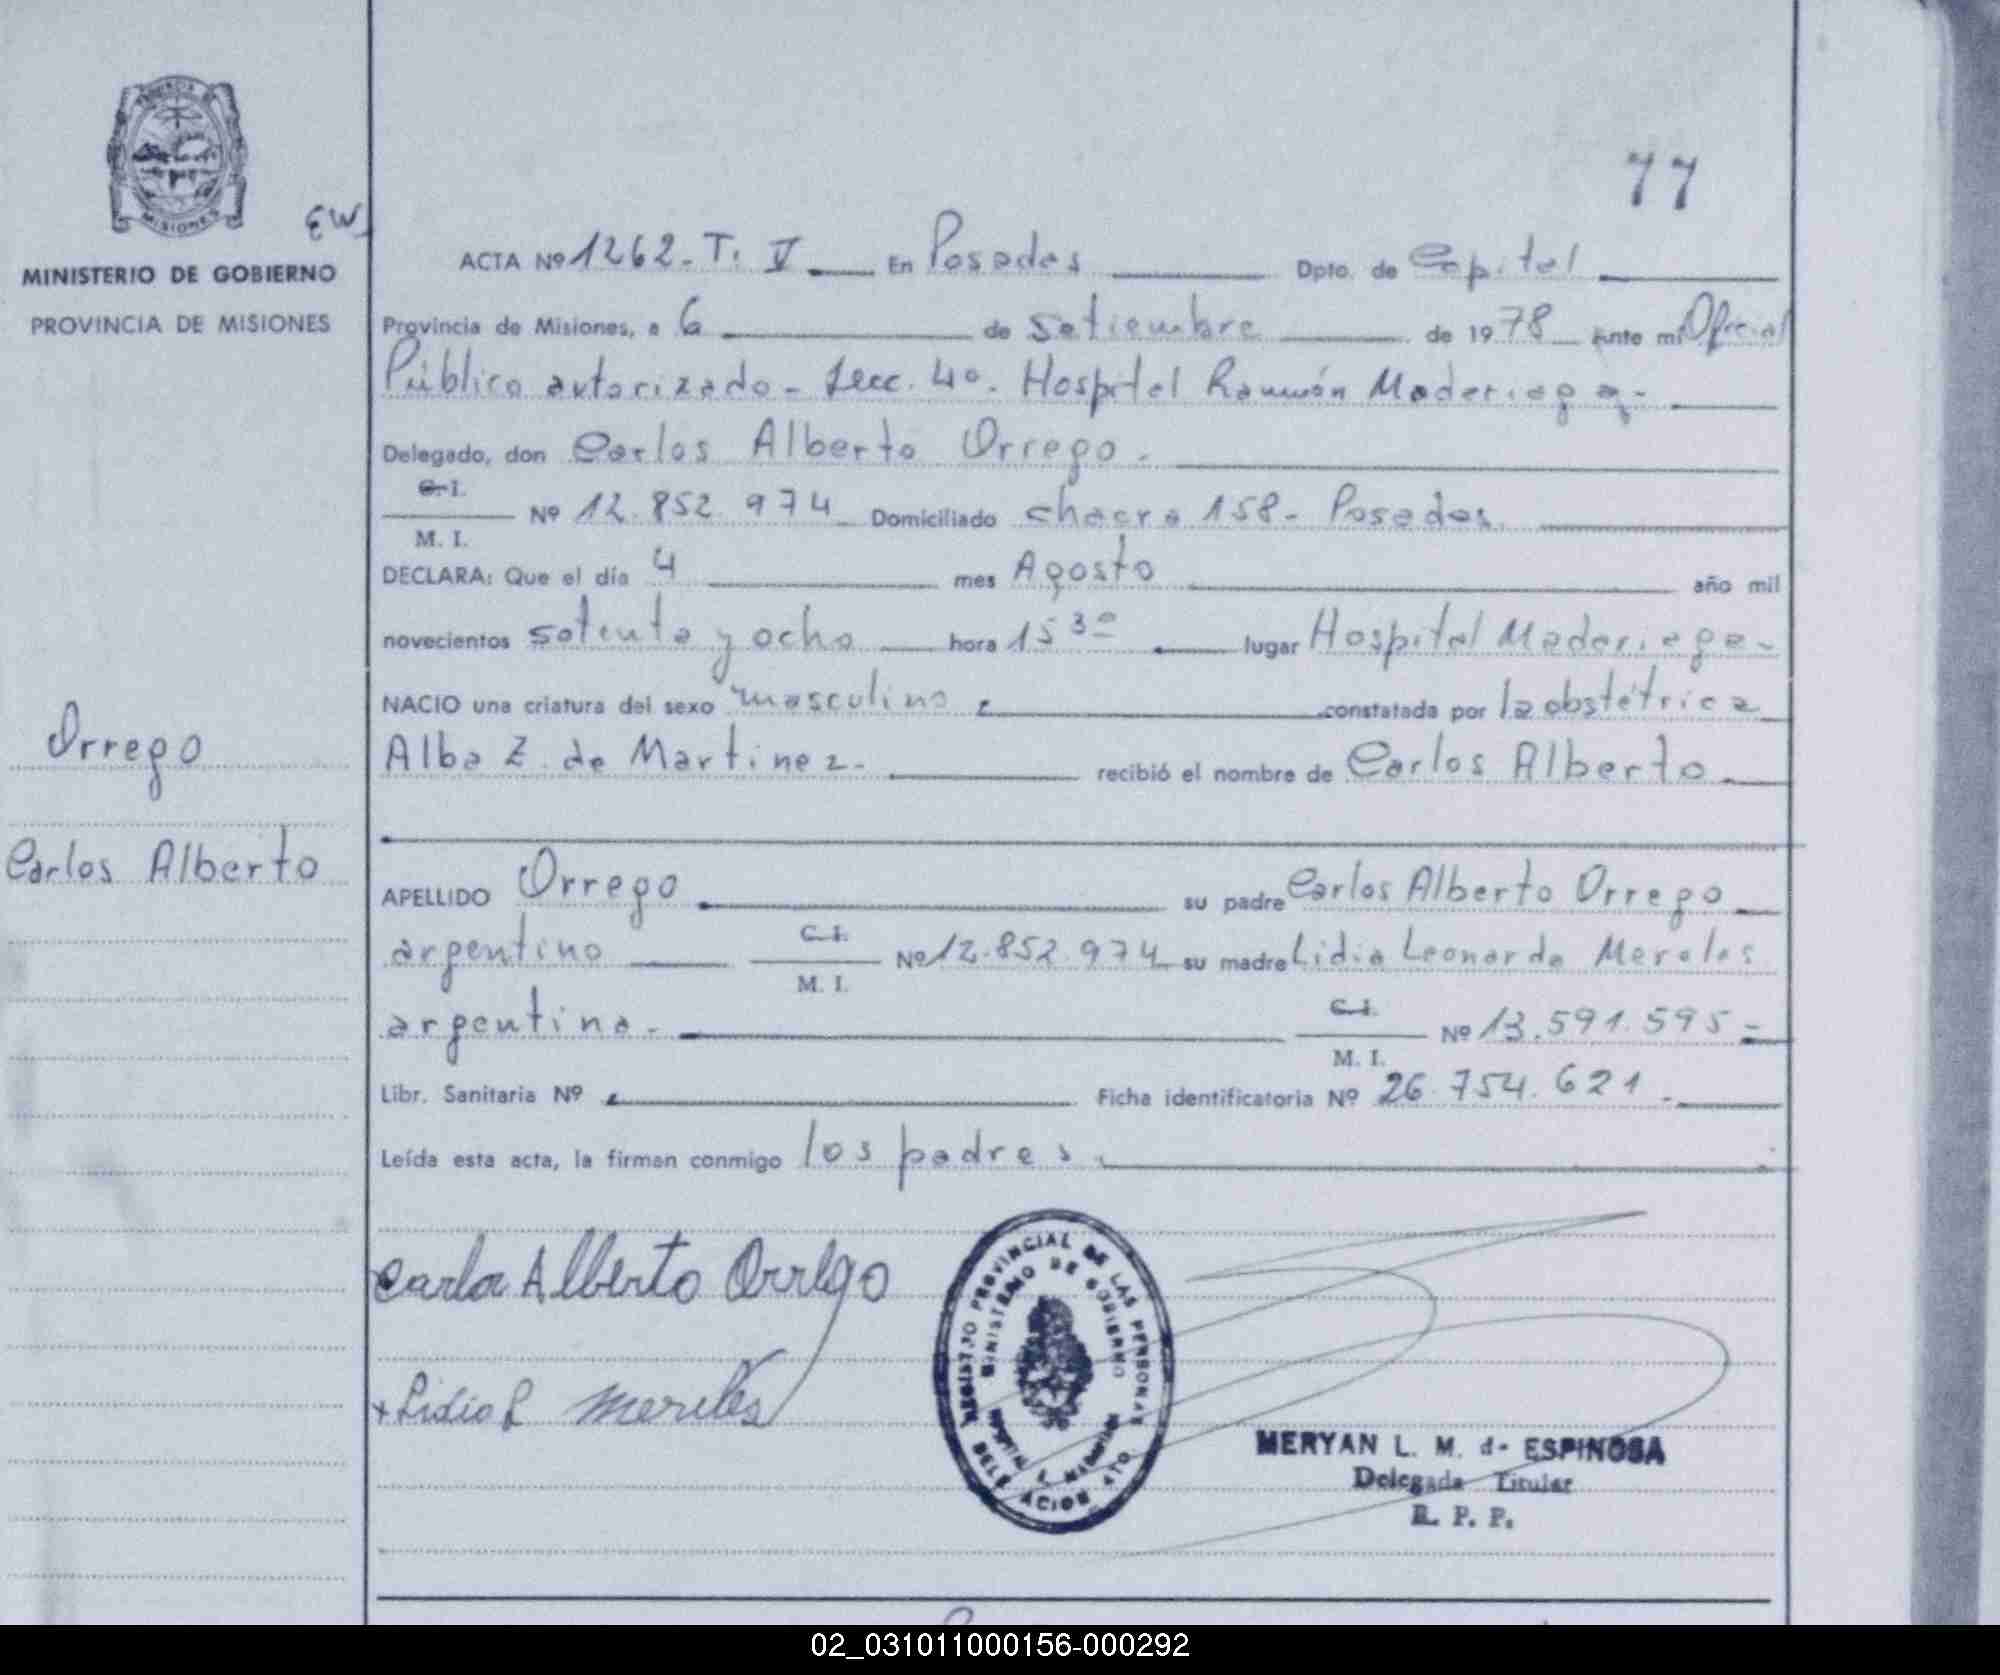 PROVINCIA DE
MISIONES
MINISTERIO DE GOBIERNO
PROVINCIA DE MISIONES
Orrego
Carlos Alberto
EW
77
ACTA Nº 1262-T. V En Posadas Dpto. de Capital
Provincia de Misiones, a 6 de setiembre de 1978 ante mi Oficial
Público autorizado - Secc. 4º. Hospital Ramón Madariaga -
Delegado, don Carlos Alberto Orrego.
C. I.
Nº 12.852.974 Domiciliado chacra 158 - Posadas
M. I.
DECLARA: Que el día 4 mes Agosto año mil
novecientos setenta y ocho hora 15 30 lugar Hospital Madariaga -
NACIO una criatura del sexo masculino constatada por la obstétrica
Alba Z. de Martinez - recibió el nombre de Carlos Alberto
APELLIDO Orrego su padre Carlos Alberto Orrego
argentino C. I. M. I. Nº 12.852.974 su madre Lidia Leonarda Mereles
argentina - C. I. M. I. Nº 13.591.595 -
Libr. Sanitaria Nº Ficha identificatoria Nº 26.754.621 -
Leída esta acta, la firman conmigo los padres.
Carlos Alberto Orrego
Lidia L Mereles
REGISTRO PROVINCIAL DE LAS PERSONAS
MINISTERIO DE GOBIERNO
MERYAN L. M. de ESPINOSA
Delegada Titular
R. P. P.
02_031011000156-000292